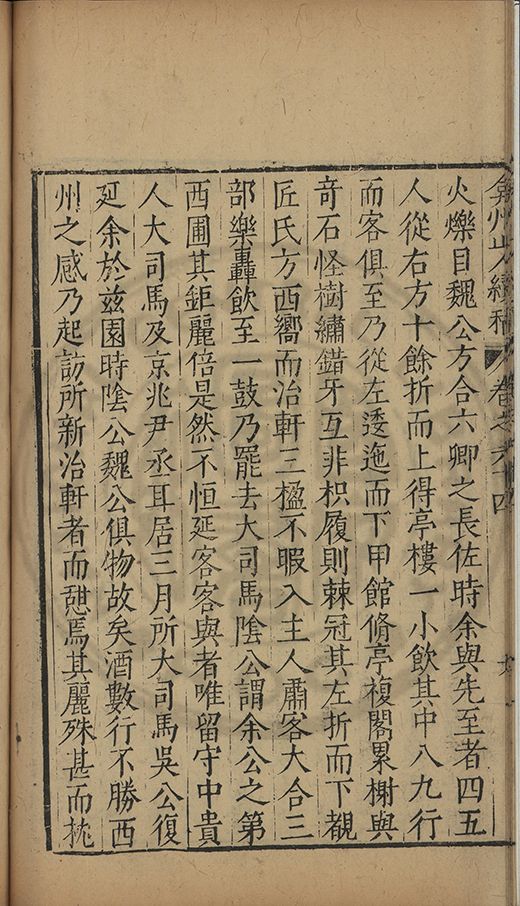 弇州山人續稿 卷之六十四
火爍目魏公方合六卿之長佐時余與先至者四五
人從右方十餘折而上得亭樓一小飲其中八九行
而客俱至乃從左逶迤而下甲館脩亭複閣累榭與
奇石怪樹繡錯牙互非枳履則棘冠其左折而下覩
匠氏方西嚮而治軒三楹不暇入主人肅客大合三
部樂轟飲至一鼓乃罷去大司馬陰公謂余公之第
西圃其鉅麗倍是然不恒延客客與者唯留守中貴
人大司馬及京兆尹丞耳居三月所大司馬吳公復
延余於兹園時陰公魏公俱物故矣酒數行不勝西
州之感乃起訪所新治軒者而憇焉其麗殊甚而枕